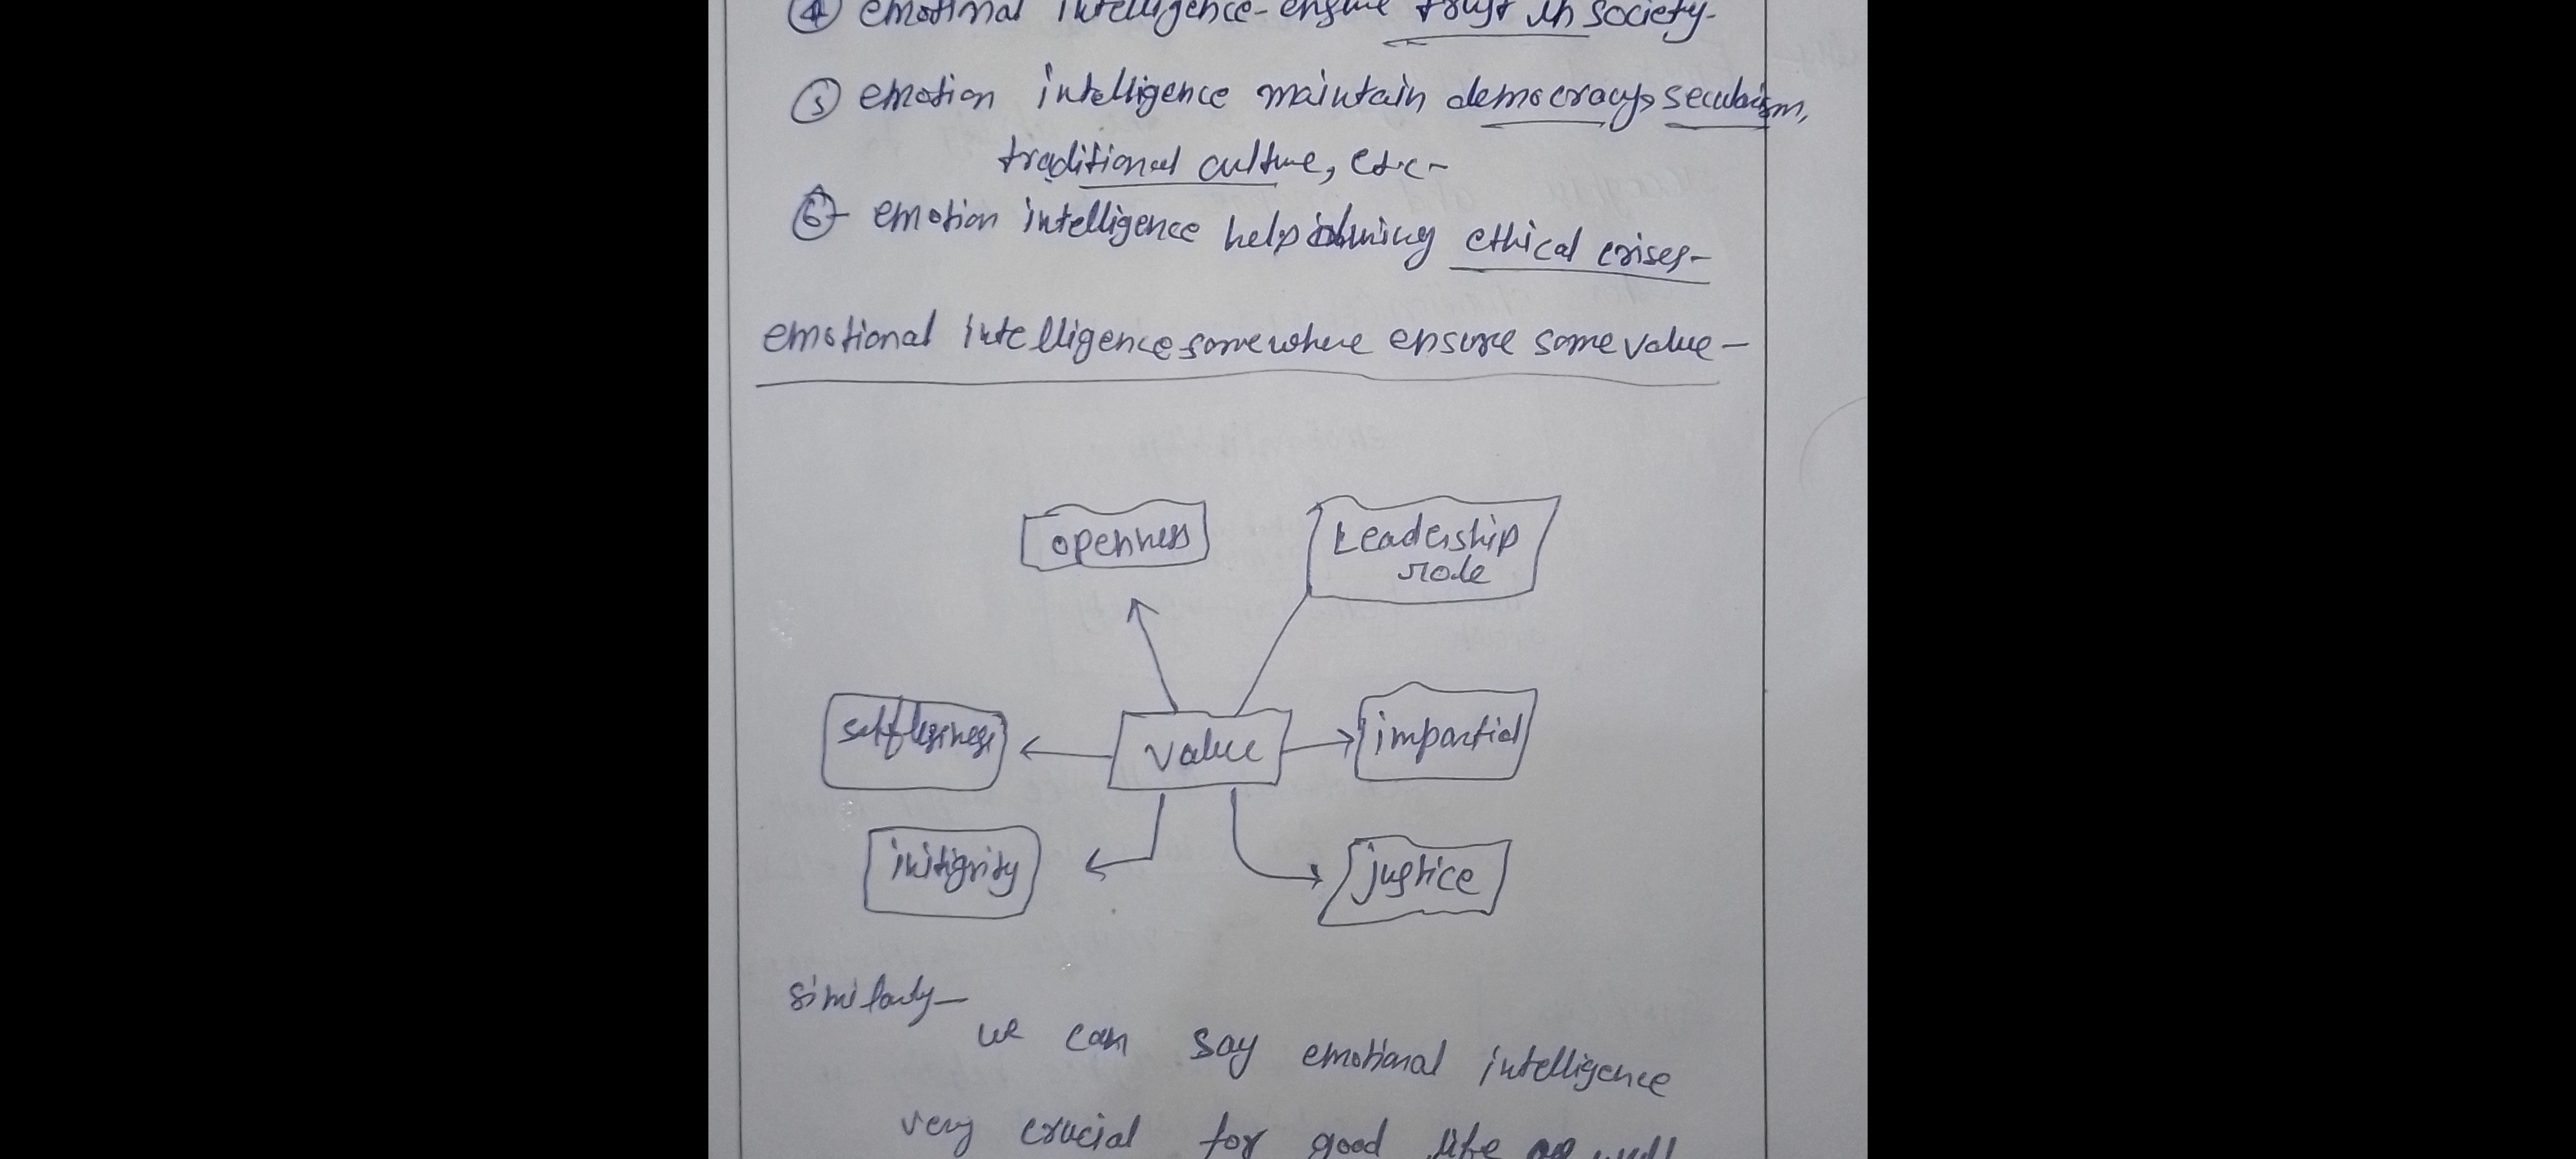 ④ emotional intelligence- ensure trust in society-
⑤ emotion intelligence maintain democracy, secularism,
traditional culture, etc-
⑥ emotion intelligence help during ethical crises-
emotional intelligence somewhere ensure some value-
openness
Leadership
role
selflessness
value
impartial
initigrity
justice
similarly-
we can say emotional intelligence
very crucial for good life as well